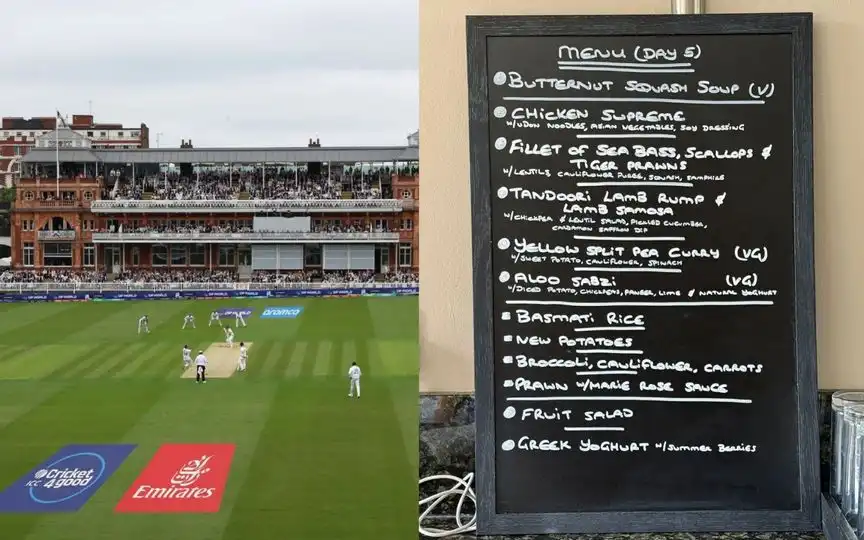 DP WORLD
DP WORLD
aramco
ICC
Cricket
4good
Emirates
MENU (DAY 5)
BUTTERNUT SQUASH SOUP (V)
CHICKEN SUPREME
W/UDON NOODLES, ASIAN VEGETABLES, SOY DRESSING
FILLET OF SEA BASS, SCALLOPS &
TIGER PRAWNS
W/LENTILS CAULIFLOWER PUREE, SQUASH, SAMPHIRE
TANDOORI LAMB RUMP &
LAMB SAMOSA
W/CHICKPEA & LENTIL SALAD, PICKLED CUCUMBER,
CARDAMON SAFFRON DIP
YELLOW SPLIT PEA CURRY (VG)
W/SWEET POTATO, CAULIFLOWER, SPINACH
ALOO SABZI (VG)
W/DICED POTATO, CHICKPEAS, PANEER, LIME & NATURAL YOGHURT
BASMATI RICE
NEW POTATOES
BROCCOLI, CAULIFLOWER, CARROTS
PRAWN W/MARIE ROSE SAUCE
FRUIT SALAD
GREEK YOGHURT W/SUMMER BERRIES